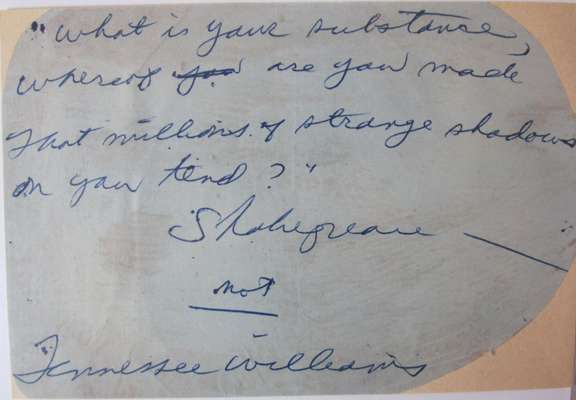 "What is your substance,
whereof you are you made
That millions of strange shadows
on you tend?"
Shakespeare —
not
Tennessee Williams